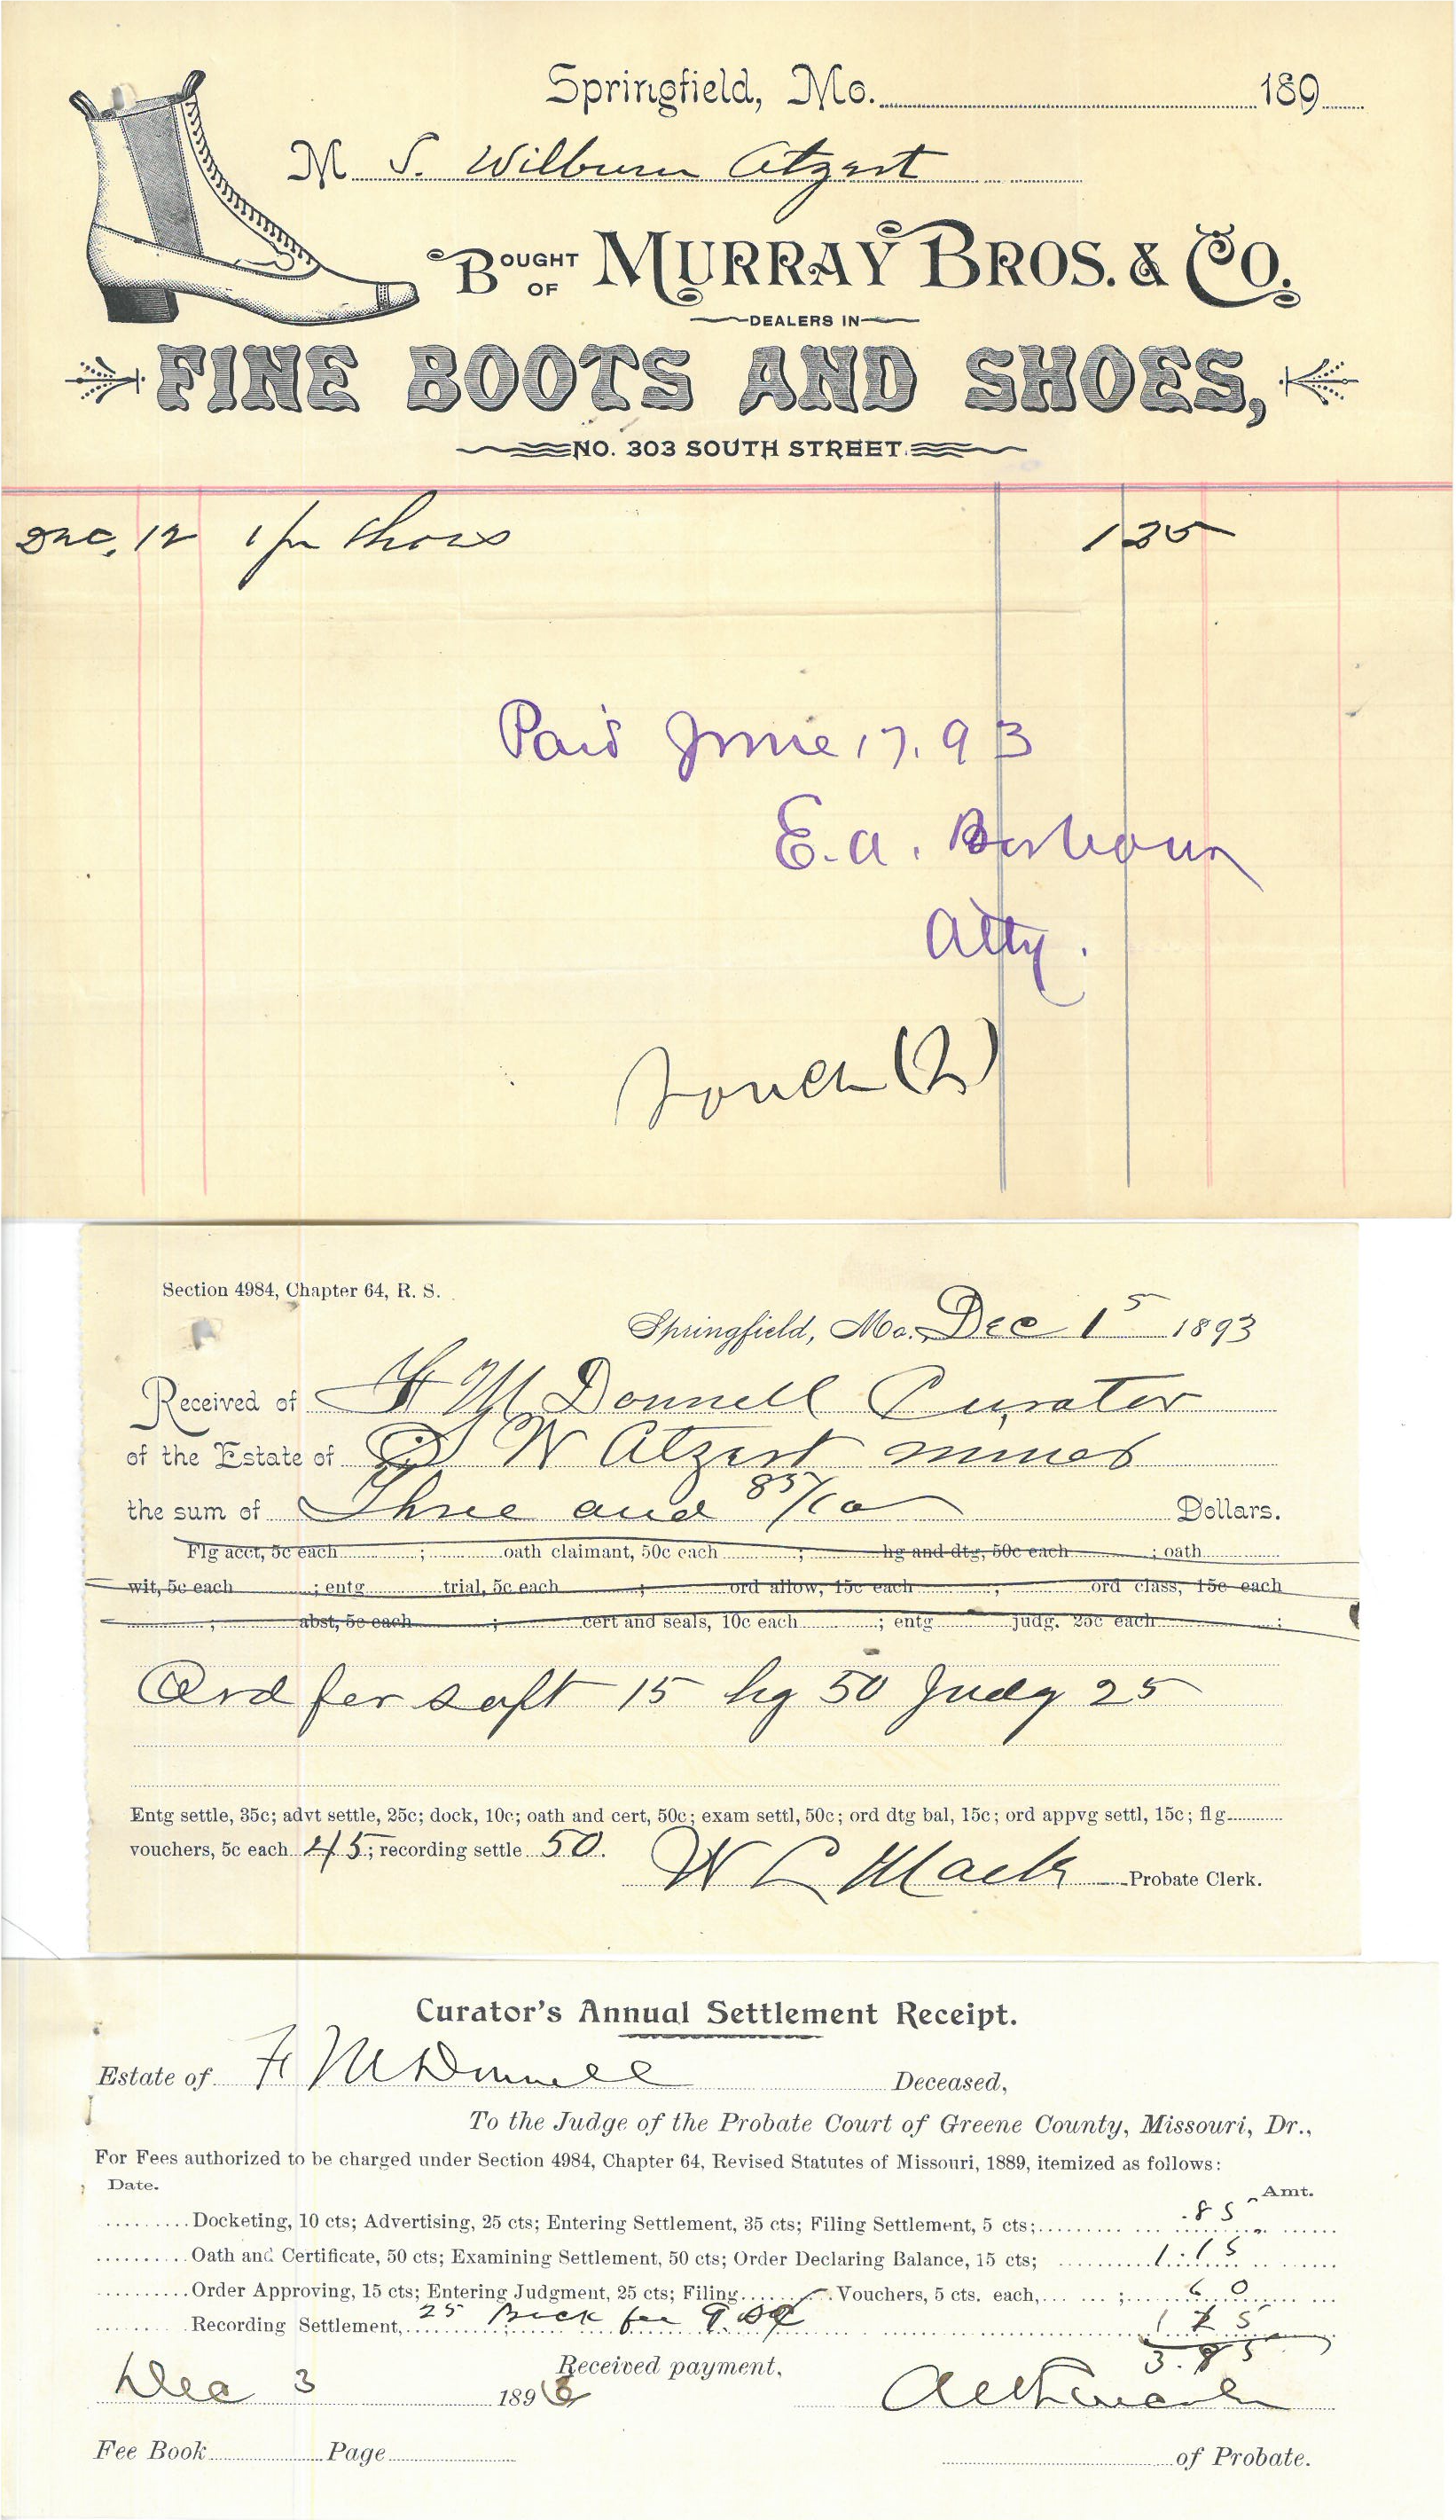 Springfield, Mo. 189
M S. Wilburn Atzert
BOUGHT OF MURRAY BROS. & CO.
DEALERS IN
FINE BOOTS AND SHOES,
NO. 303 SOUTH STREET.
Dec. 12 1 pr Shoes 1 25
Paid June 17. 93
E. A.
Atty.
Vouch (2)
Section 4984, Chapter 64, R. S.
Springfield, Mo. Dec 15 1893
Received of F McDonnell Curator
of the Estate of S W Atzert minor
the sum of Three and 85/100 Dollars.
Flg acct, 5c each ; oath claimant, 50c each ; hg and dtg, 50c each ; oath
wit, 5c each ; entg trial, 5c each ; ord allow, 15c each ; ord class, 15c each
; abst, 5c each ; cert and seals, 10c each ; entg judg. 25c each ;
Ord for 15 hg 50 Judg 25
Entg settle, 35c; advt settle, 25c; dock, 10c; oath and cert, 50c; exam settl, 50c; ord dtg bal, 15c; ord appvg settl, 15c; flg
vouchers, 5c each 45; recording settle 50.
W L Mack Probate Clerk.
Curator's Annual Settlement Receipt.
Estate of F McDonnell Deceased,
To the Judge of the Probate Court of Greene County, Missouri, Dr.,
For Fees authorized to be charged under Section 4984, Chapter 64, Revised Statutes of Missouri, 1889, itemized as follows:
Date. Amt.
Docketing, 10 cts; Advertising, 25 cts; Entering Settlement, 35 cts; Filing Settlement, 5 cts; .85
Oath and Certificate, 50 cts; Examining Settlement, 50 cts; Order Declaring Balance, 15 cts; 1.15
Order Approving, 15 cts; Entering Judgment, 25 cts; Filing Vouchers, 5 cts. each, ; 60
Recording Settlement, 25 Back fee 1 25
3.85
Received payment,
Dec 3 1896
Fee Book Page of Probate.